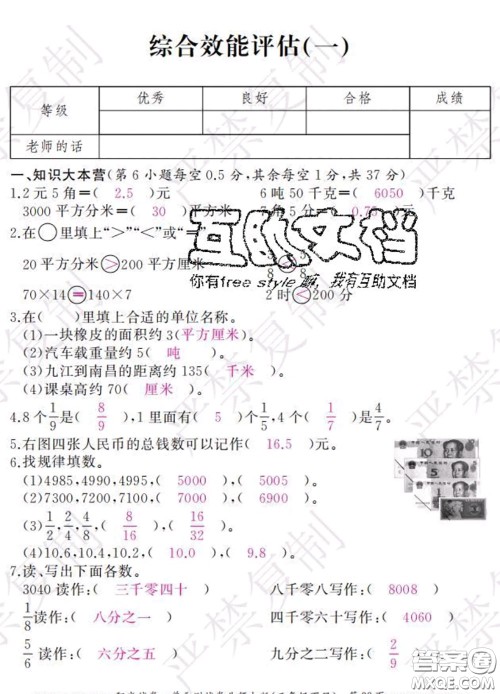 综合效能评估(一)
等级 优秀 良好 合格 成绩
老师的话
一、知识大本营(第6小题每空0.5分,其余每空1分,共37分)
1.2元5角=( 2.5 )元 6吨50千克=( 6050 )千克
3000平方分米=( 30 )平方米 7角5分=( 0.75 )元
2.在○里填上“>”“<”或“=”。
20平方分米>200平方厘米
70×14=140×7 2时<200分
互助文档
你有free style嘛,我有互助文档
3.在( )里填上合适的单位名称。
(1)一块橡皮的面积约3(平方厘米)。
(2)汽车载重量约5( 吨 )。
(3)九江到南昌的距离约135( 千米 )。
(4)课桌高约70( 厘米 )。
4.8个1/9是( 8/9 ),1里面有( 5 )个1/5,4个( 1/7 )是4/7。
5.右图四张人民币的总钱数可以记作( 16.5 )元。
6.找规律填数。
(1)4985,4990,4995,( 5000 ),( 5005 )。
(2)7300,7200,7100,( 7000 ),( 6900 )。
(3)1/2,2/4,4/8,( 8/16 ),( 16/32 )。
(4)10.6,10.4,10.2,( 10.0 ),( 9.8 )。
7.读、写出下面各数。
3040读作:( 三千零四十 ) 八千零八写作:( 8008 )
1/8读作:( 八分之一 ) 四千零六十写作:( 4060 )
5/6读作:( 六分之五 ) 九分之二写作:( 2/9 )
严禁复制
答案圈
MXQE.COM